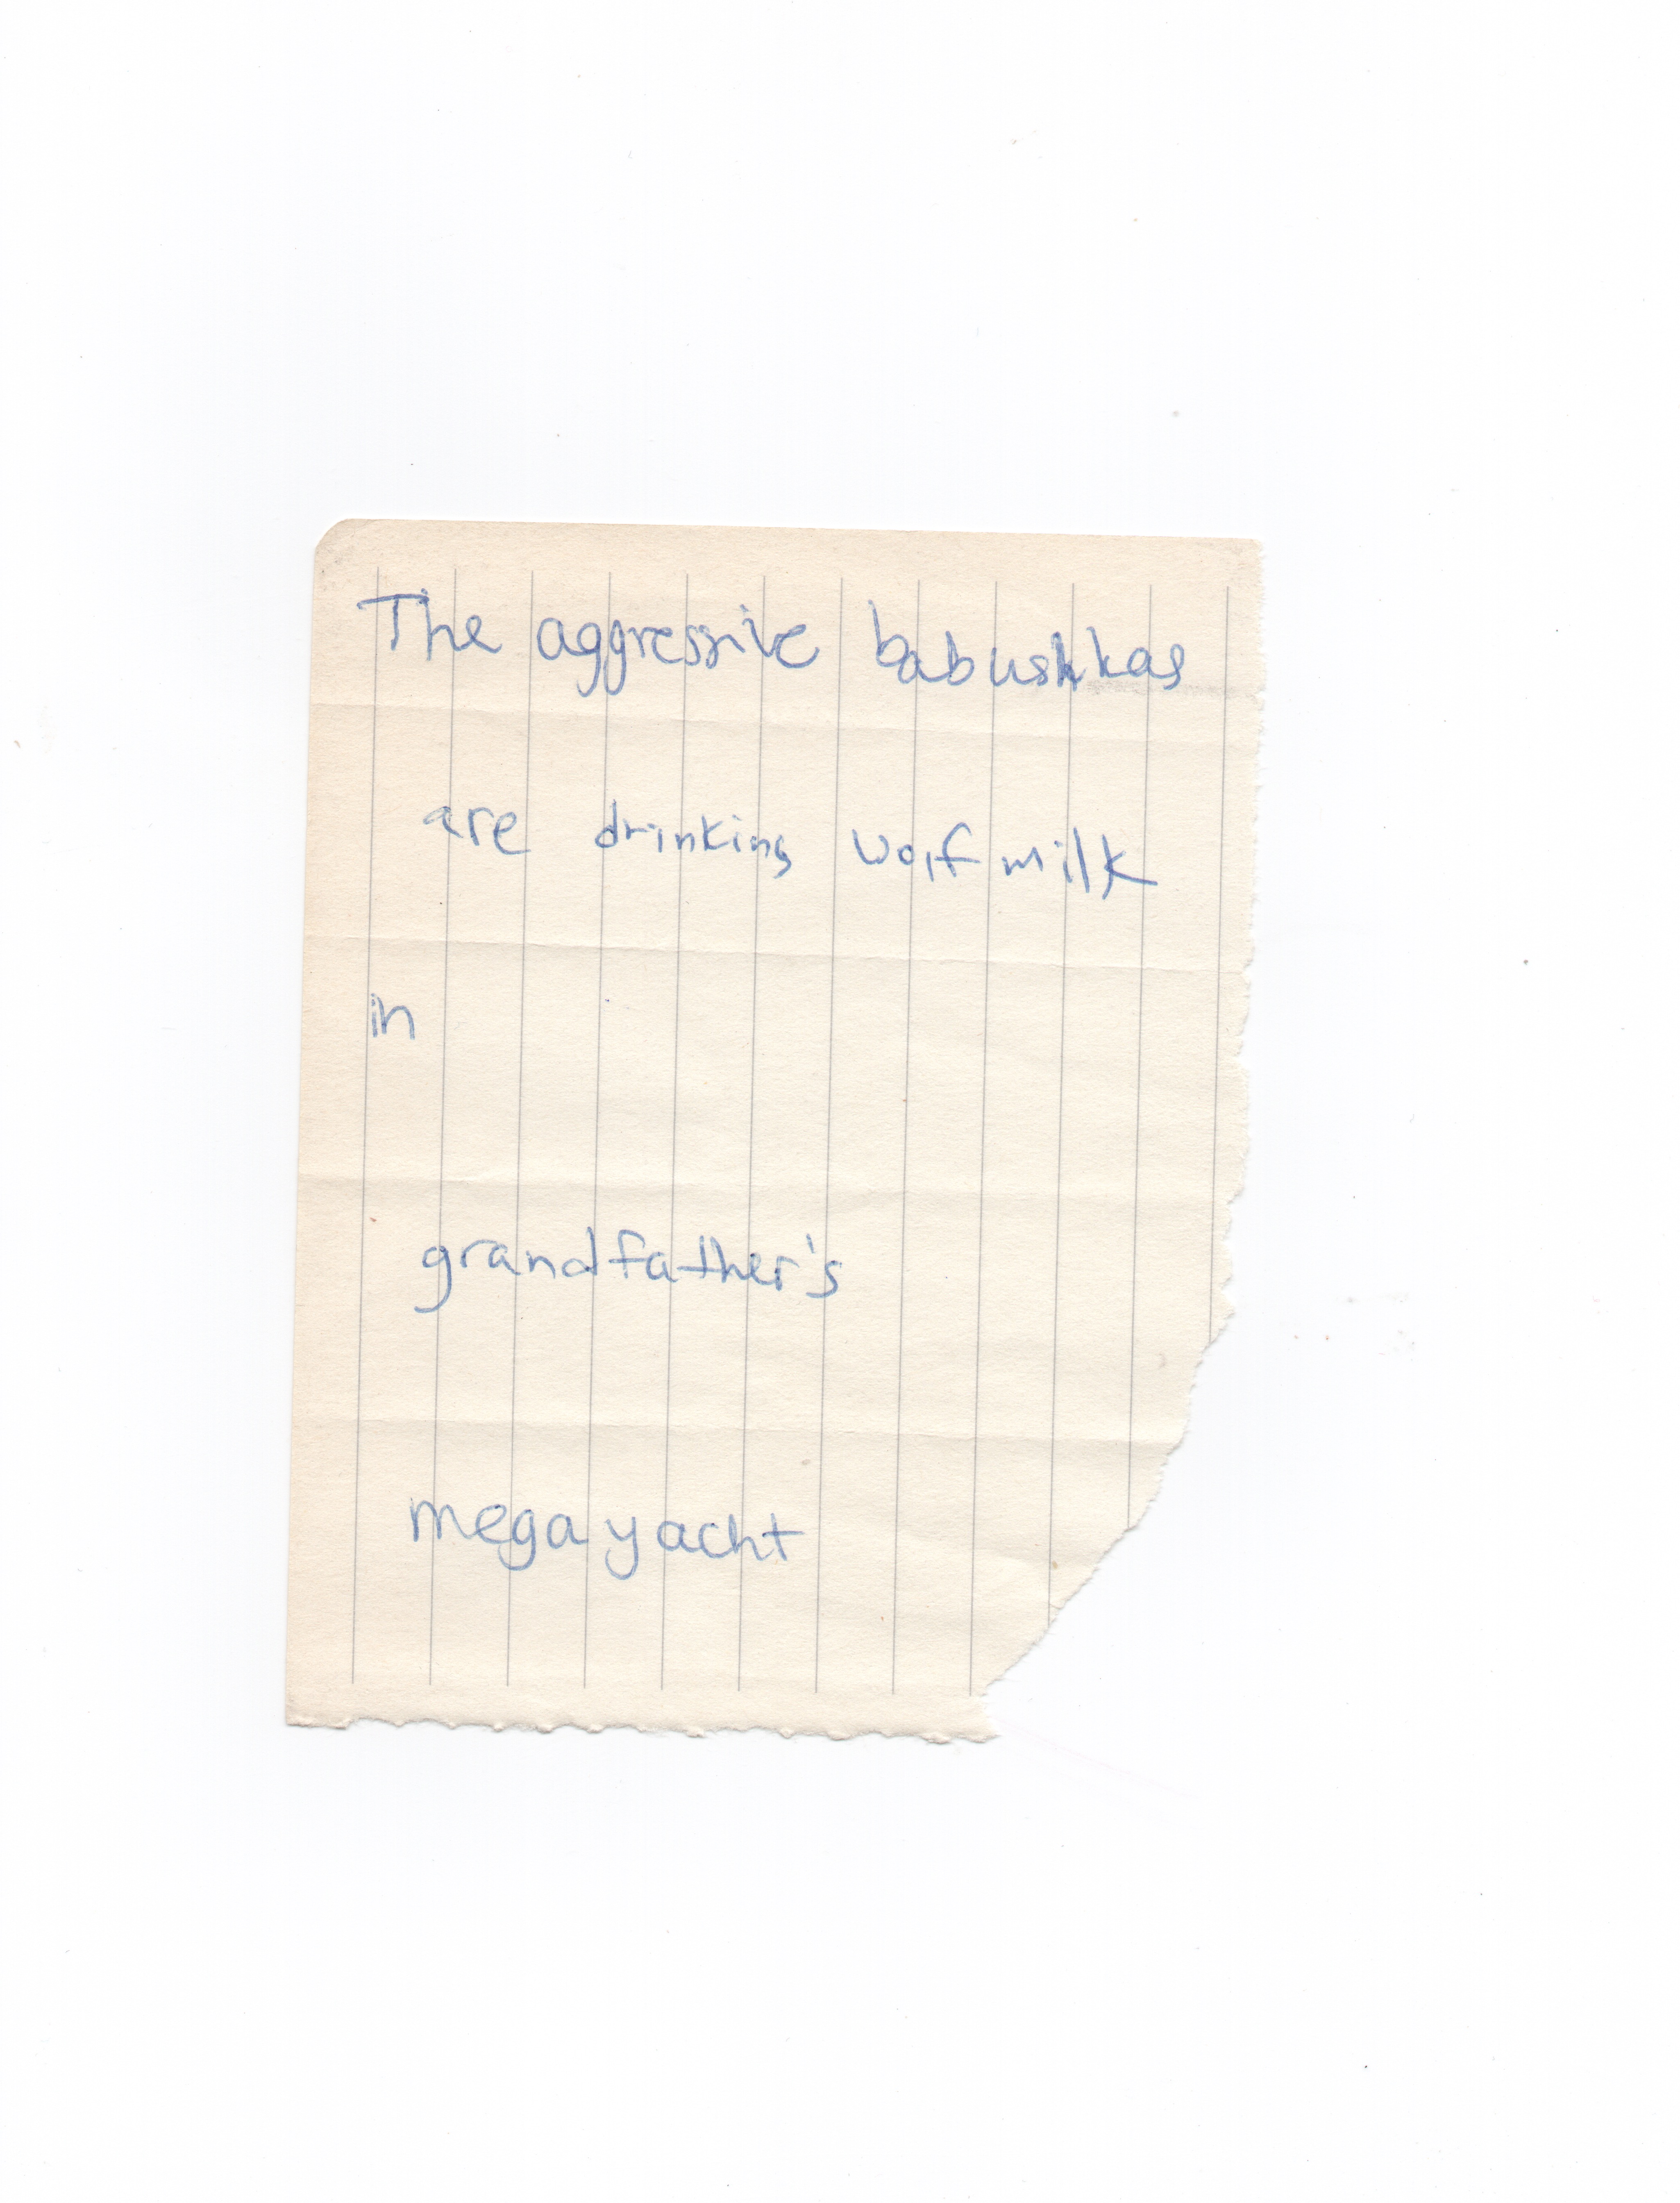 The aggressive babushkas
are drinking wolf milk
in
grandfather's
mega yacht